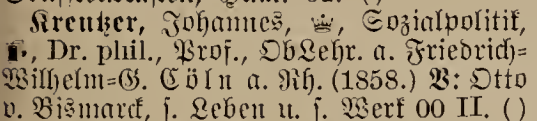 Kreutzer, Johannes, Sozialpolitik,
Dr. phil., Prof., ObLehr. a. Friedrich=
Wilhelm=G. Cöln a. Rh. (1858.) V: Otto
v. Bismarck, s. Leben u. s. Werk 00 II. ()